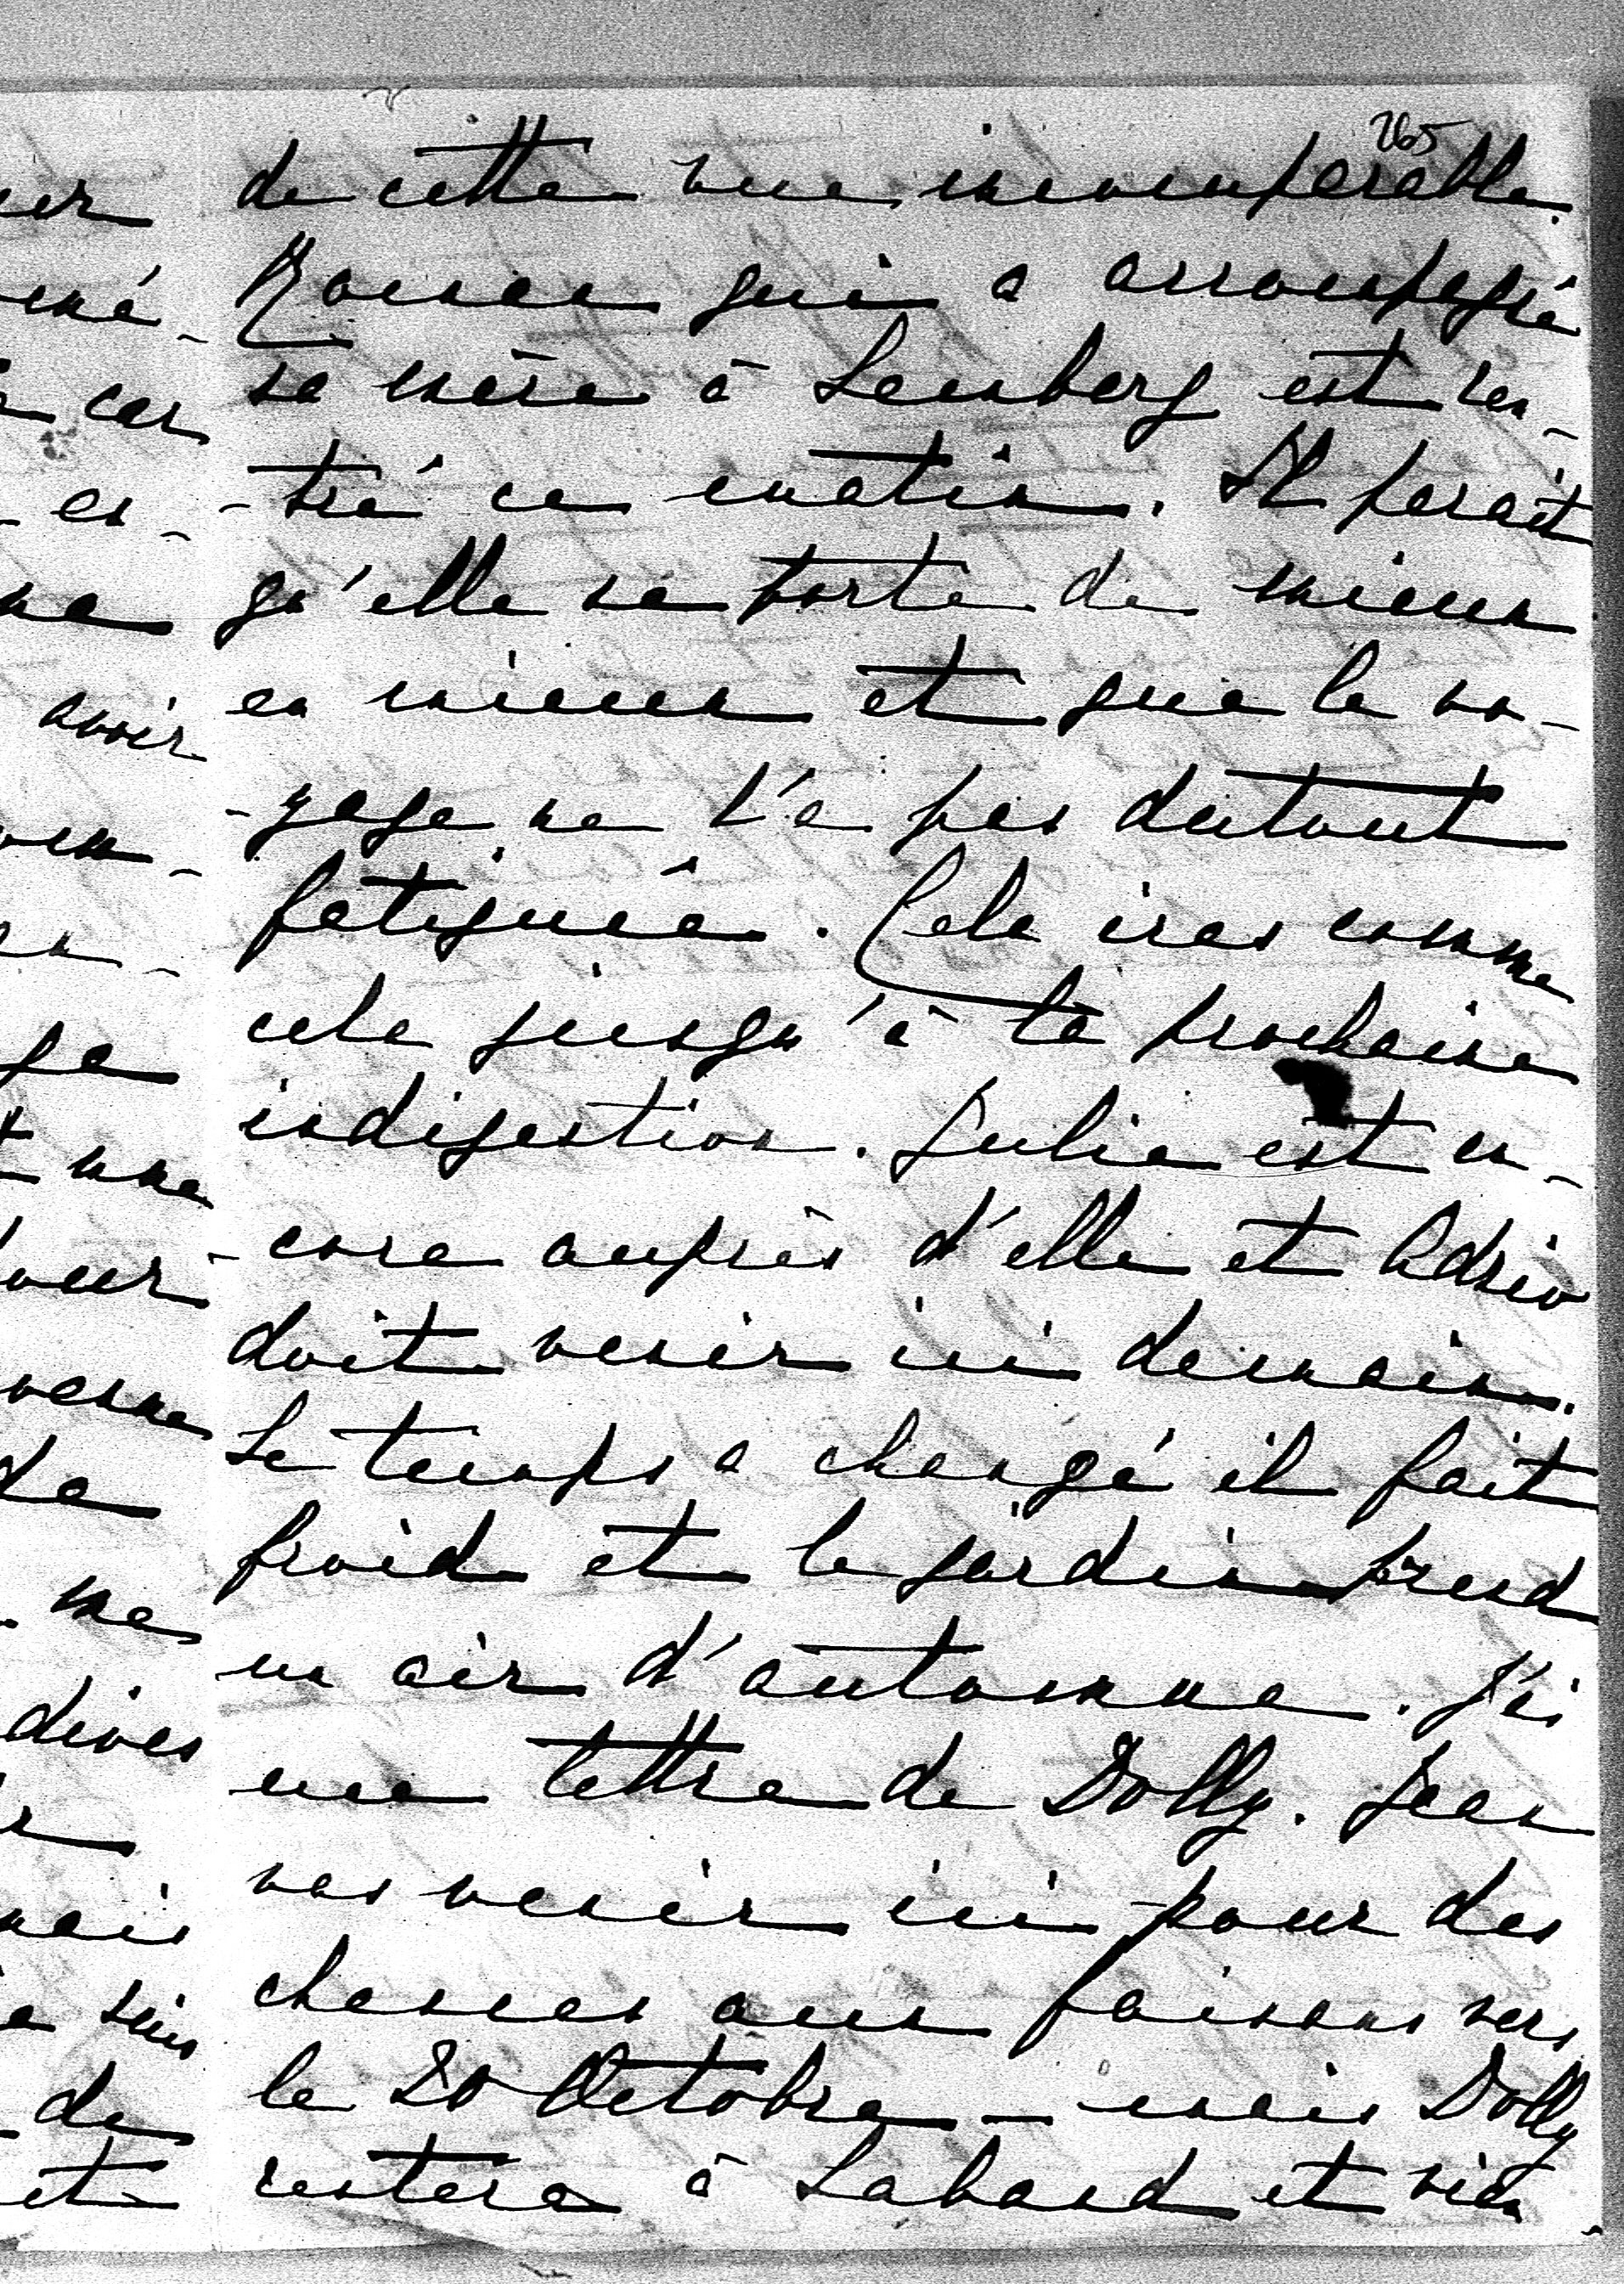 265
de cette vue incomparable.
Roman qui a accompagné
sa mère à Lemberg est ren-
-tré ce matin. Il parait
qu'elle se porte de mieux
en mieux et que le vo-
-yage ne l'a pas dutout
fatiguée. Cela iras comme
cela jusqu'à la prochaine
indigestion. Julie est en-
-core auprès d'elle et Adrio
doit venir ici demain.
Le temps a changé il fait
froid et le jardin prend
un air d'automne. J'ai
une lettre de Dolly. Jean
vas venir ici pour des
chasses aux faisans vers
le 20 Octobre — mais Dolly
restera à Laband et vien